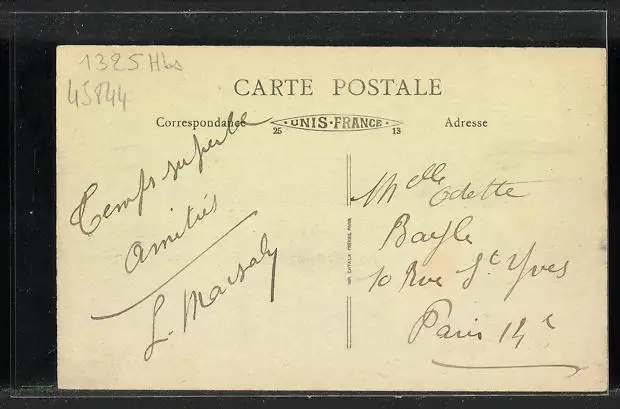 1325 Hbs
45844
CARTE POSTALE
Correspondance
UNIS-FRANCE
25
13
Adresse
Temps superbe
Amitiés
Mlle Odette
Bayle
10 Rue St. Yves
Paris 14e
IMP. CATALA FRÈRES, PARIS